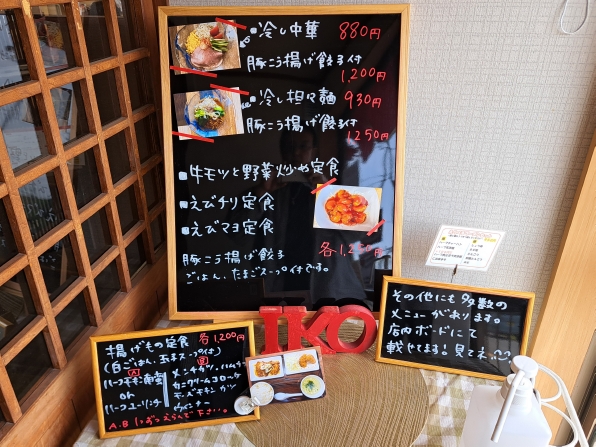 ・冷し中華 880円
豚こう揚げ餃子付
1,200円
・冷し担々麺 930円
豚こう揚げ餃子付
1250円
■牛モツと野菜炒め定食
■えびチリ定食
■えびマヨ定食
各1,250円
豚こう揚げ餃子
ごはん、たまごスープ付です。
IKO
その他にも多数の
メニューがあります。
店内ボードにて
載せてます!見てネ
揚げもの定食 各1,200円
(白ごはん、玉子スープ付)
A
ハーフチキン南蛮
or
ハーフユーリンチ
B
メンチカツ、ハムカツ
カニクリームコロッケ
チーズチキンカツ
ウィンナー
A.B 1つずつえらんで下さい。